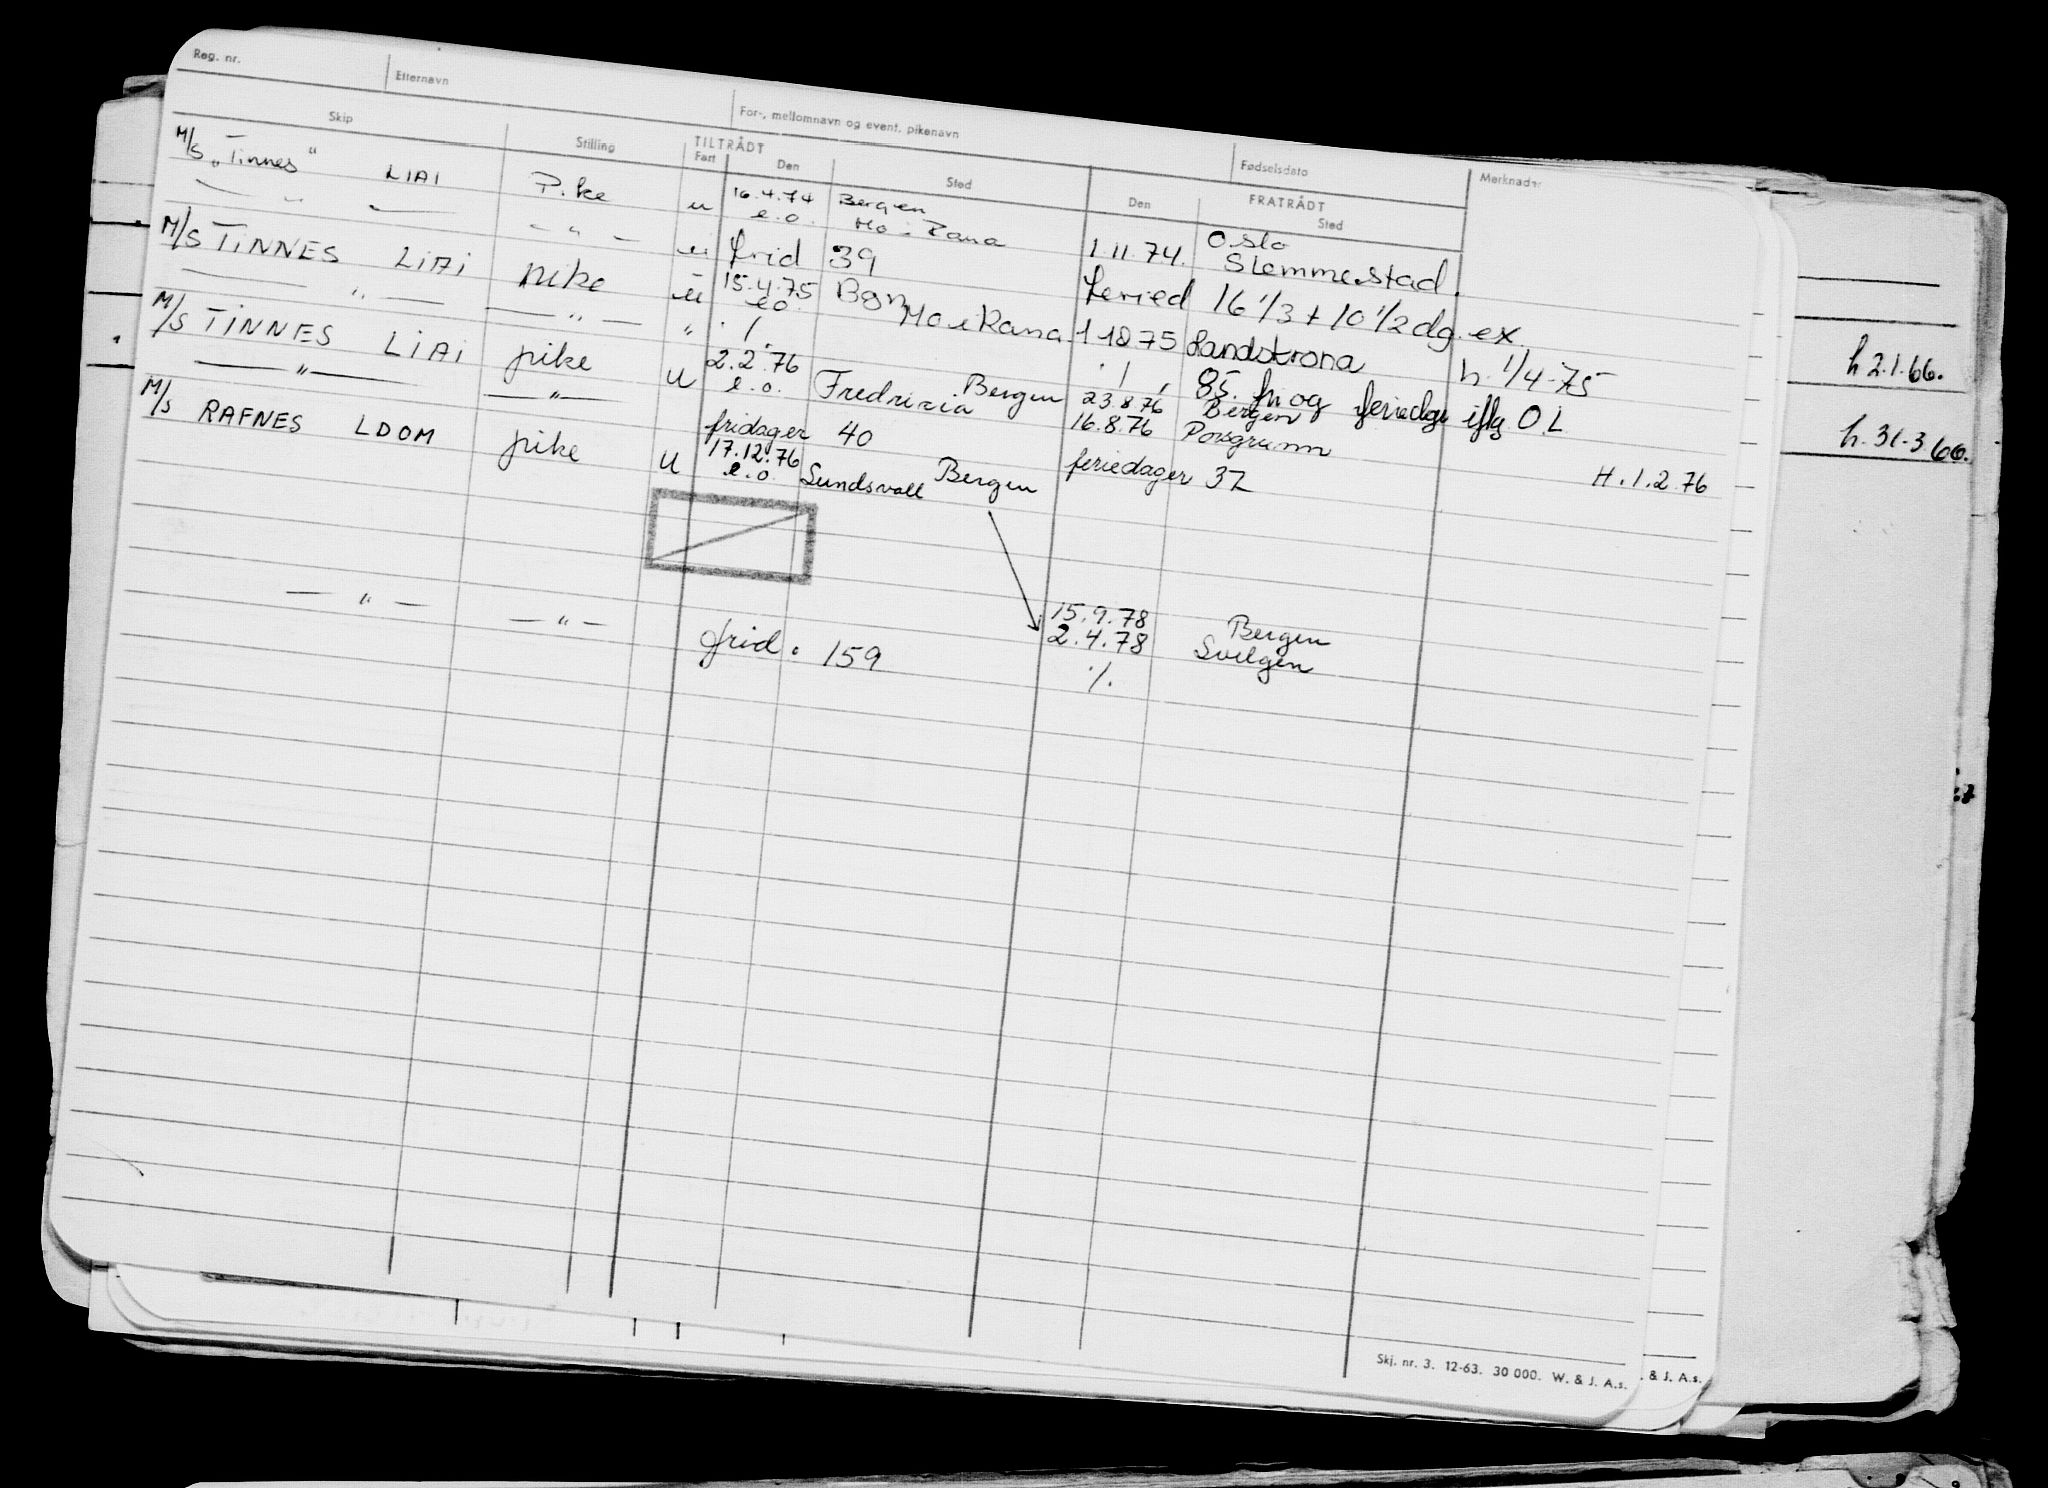 Reg. nr. Etternavn For-, mellomnavn og event. pikenavn Fødselsdato
Skip Stilling TILTRÅDT Fart Den Sted FRATRÅDT Den Sted Merknader
M/S „Tinnes" LIAI Pike u 16.4.74 Bergen
— " — — " — e.o. Mo i Rana 1.11.74. Oslo
Slemmestad.
M/S TINNES LIAI pike u frid 39 feried 16 1/3 + 10 1/2 dg. ex.
— " — — " — " 15.4.75 Bgn
e.o. Mo i Rana 1 10 75 Landskrona h. 1/4-75
M/S TINNES LIAI pike u 2.2.76 Bergen 85. fri og feriedgr iflg O.L
— " — — " — e.o. Fredricia 23.8.76 Bergen
16.8.76 Porsgrunn H.1.2.76
M/S RAFNES LDOM pike u fridager 40 feriedager 32
17.12.76 Bergen
e.o. Sundsvall
— " — — " — 15.9.78 Bergen
2.4.78 Svelgen
frid. 159 ./.
h 2.1.66.
h. 31.3.66.
Skj. nr. 3. 12-63. 30 000. W. & J. A.s.
& J. A.s.